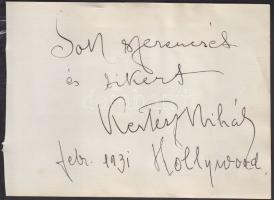 Sok szerencsét
és sikert
Kertész Mihály
febr. 1931 Hollywood.